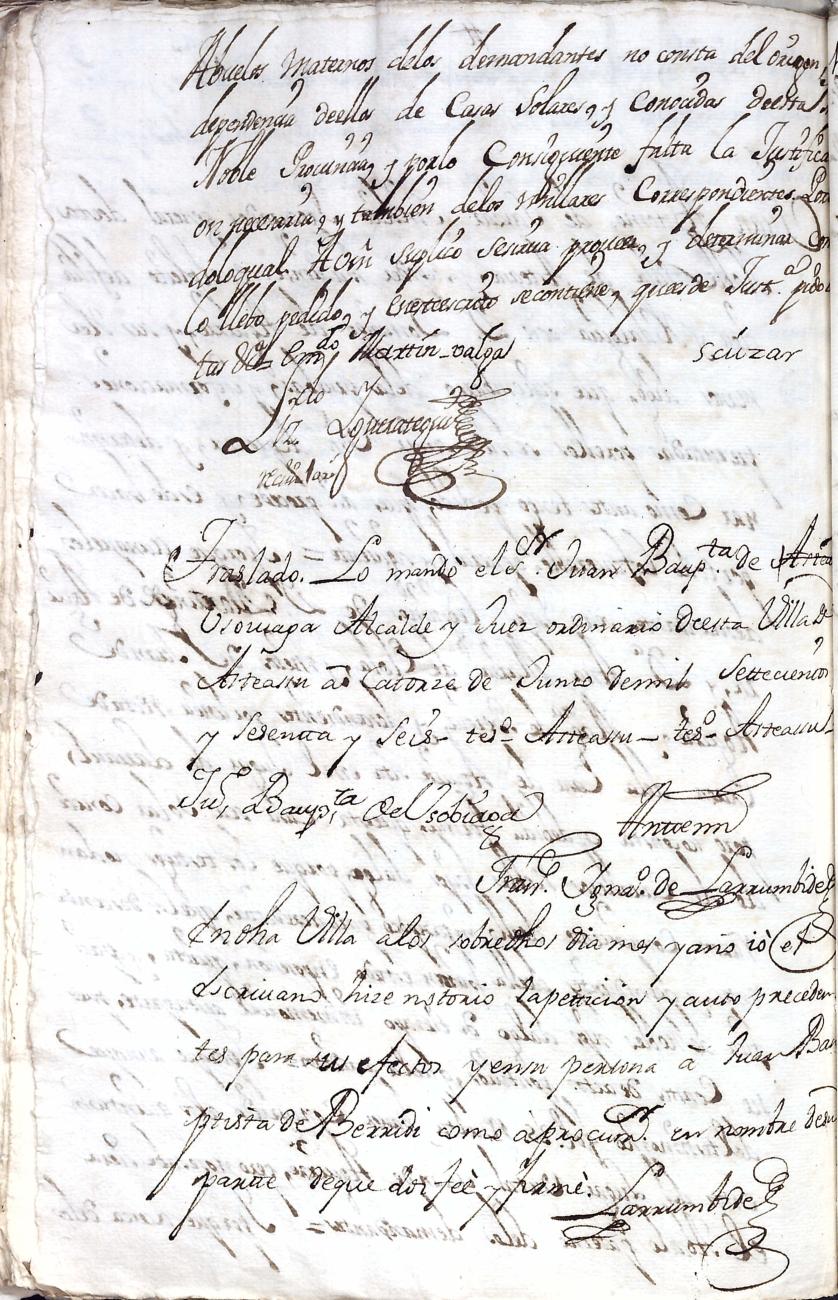 Abuelos Maternos delos demandantes no consta del origen,
dependencia deellos de Casas Solares, y Conocidas deesta
Noble Provincia, y porlo Consiguiente falta la Justifica
on necesaria, y tambien delos titulares Correspondientes. Por
doloqual. A Vm suplico se sirva proveer, y determinar Con
lo llebo pedido, y eneste escrito secontiene, que es de Just.ª pido
tas &ª Martin valga
Scúzar
Traslado. Lo mandò el S.or Juan Baup.ta de
Usoviaga Alcalde y Juez ordinario deesta Villa de
Asteasu a Catorze de Junio demil Settecientos
y Sesentta y Seis tesº Asteasu tesº Asteasu
Juº Baup.ta de Usobiaga
Antemi
Franº Ignaº. de Larrumbide
En dha Villa alos sobredhos dia mes y año iò el
Escrivano hize notorio la pettición y auto preceden
tes para sus efectos y en su persona à Juan Bau
ptista de Berridi como à procur.or en nombre desu
parte de que doi feè y firmè.
Larrumbide